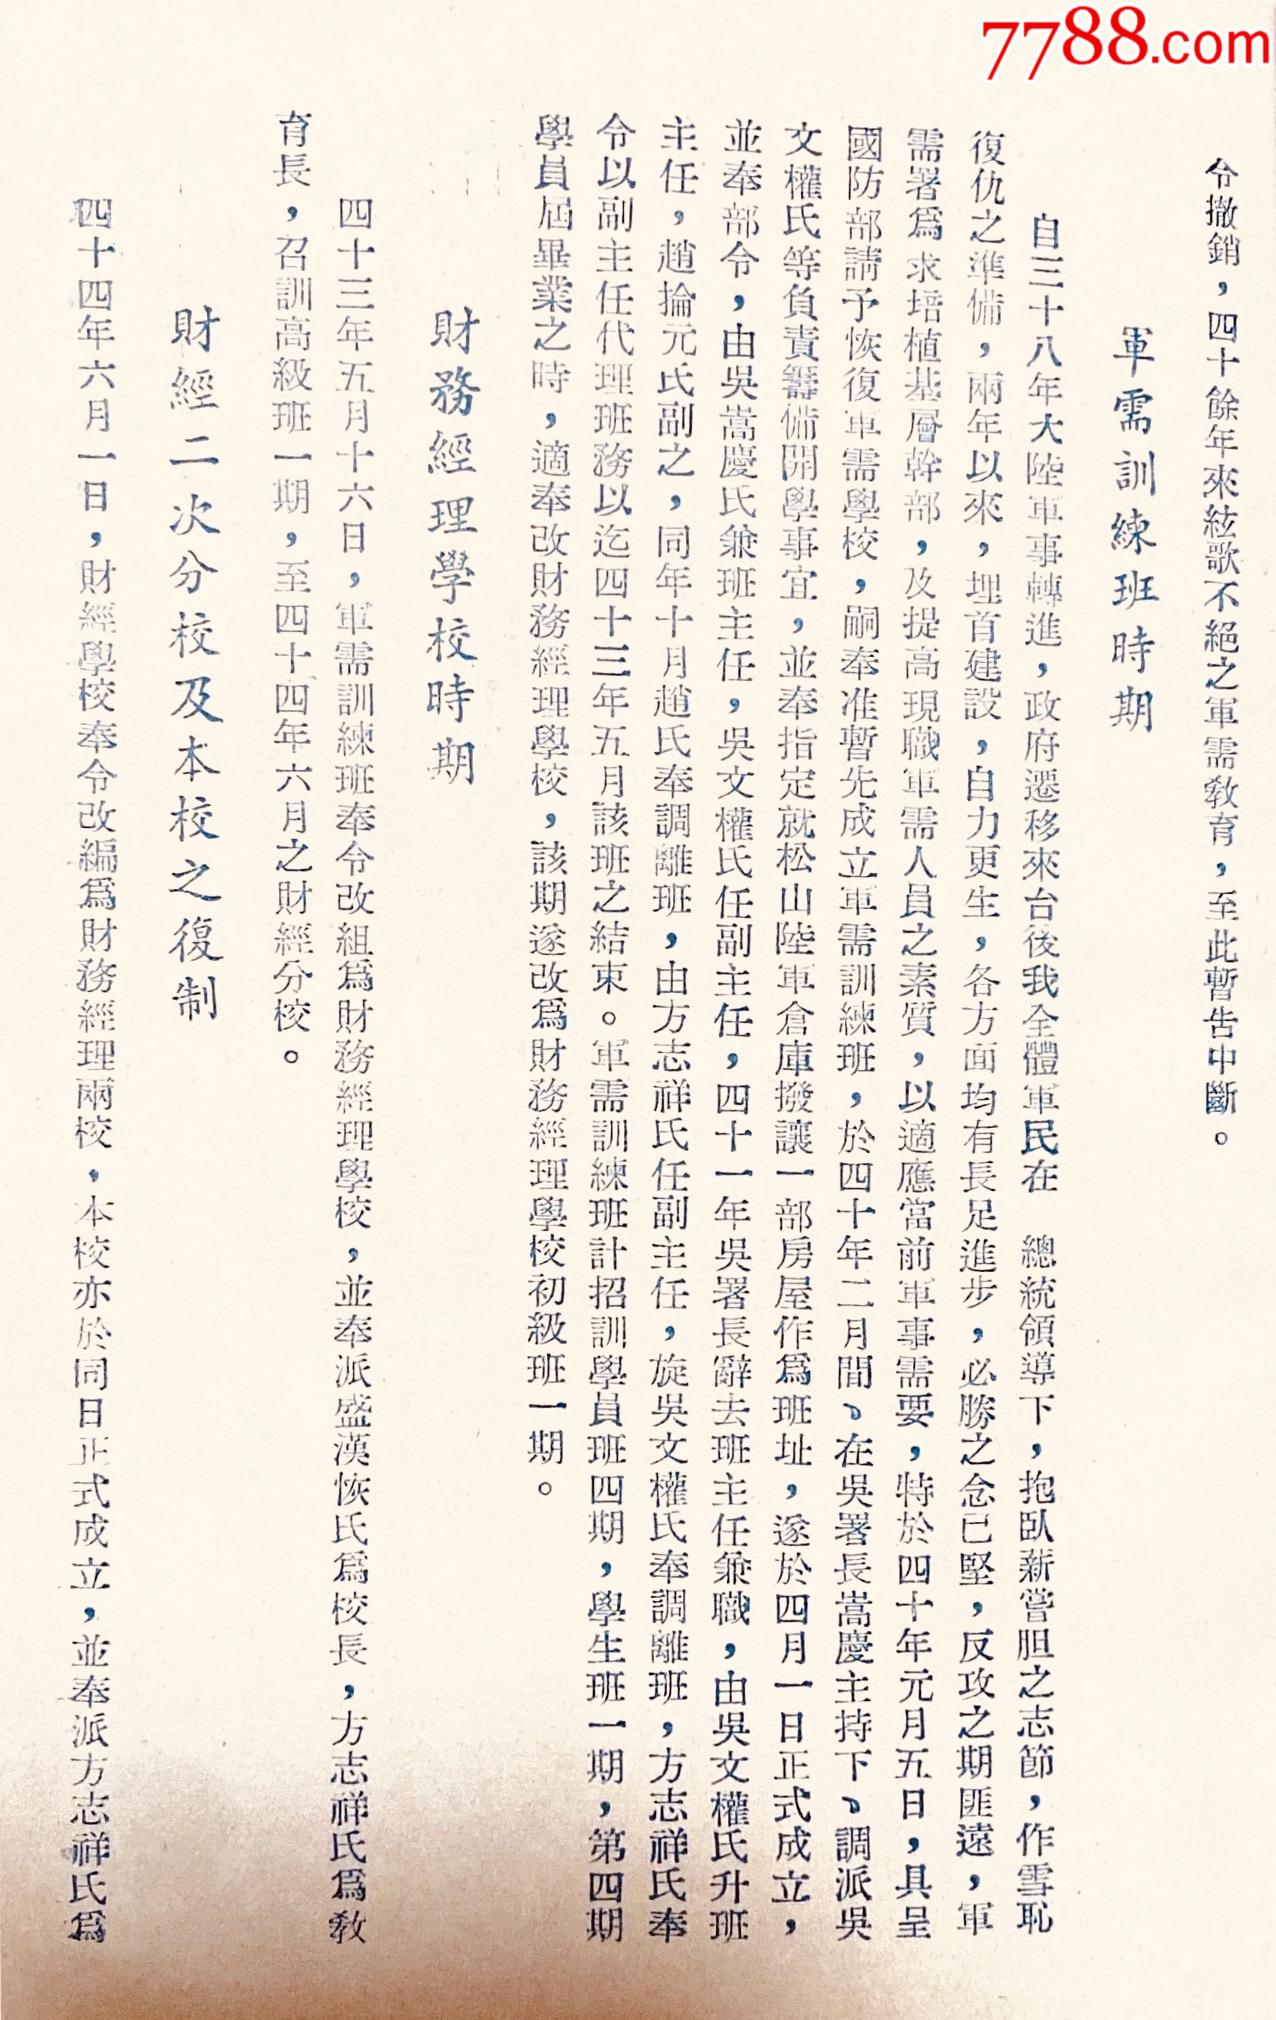 7788.com
令撤銷，四十餘年來絃歌不絕之軍需敎育，至此暫告中斷。
軍需訓練班時期
自三十八年大陸軍事轉進，政府遷移來台後我全體軍民在　總統領導下，抱臥薪嘗胆之志節，作雪恥
復仇之準備，兩年以來，埋首建設，自力更生，各方面均有長足進步，必勝之念已堅，反攻之期匪遠，軍
需署爲求培植基層幹部，及提高現職軍需人員之素質，以適應當前軍事需要，特於四十年元月五日，具呈
國防部請予恢復軍需學校，嗣奉准暫先成立軍需訓練班，於四十年二月間、在吳署長嵩慶主持下、調派吳
文權氏等負責籌備開學事宜，並奉指定就松山陸軍倉庫撥讓一部房屋作爲班址，遂於四月一日正式成立，
並奉部令，由吳嵩慶氏兼班主任，吳文權氏任副主任，四十一年吳署長辭去班主任兼職，由吳文權氏升班
主任，趙掄元氏副之，同年十月趙氏奉調離班，由方志祥氏任副主任，旋吳文權氏奉調離班，方志祥氏奉
令以副主任代理班務以迄四十三年五月該班之結束。軍需訓練班計招訓學員班四期，學生班一期，第四期
學員屆畢業之時，適奉改財務經理學校，該期遂改爲財務經理學校初級班一期。
財務經理學校時期
四十三年五月十六日，軍需訓練班奉令改組爲財務經理學校，並奉派盛漢恢氏爲校長，方志祥氏爲敎
育長，召訓高級班一期，至四十四年六月之財經分校。
財經二次分校及本校之復制
四十四年六月一日，財經學校奉令改編爲財務經理兩校，本校亦於同日正式成立，並奉派方志祥氏爲